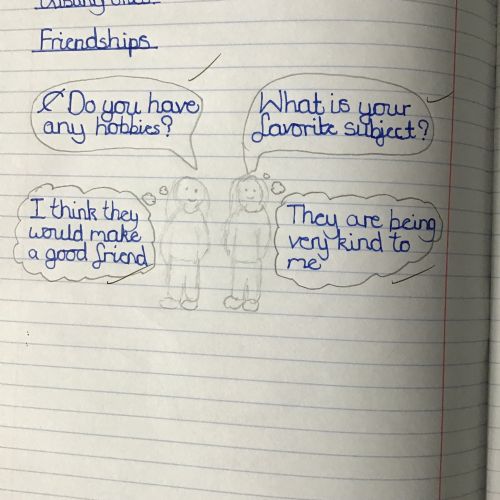 Friendships
Do you have
any hobbies?
What is your
favorite subject?
I think they
would make
a good friend
They are being
very kind to
me